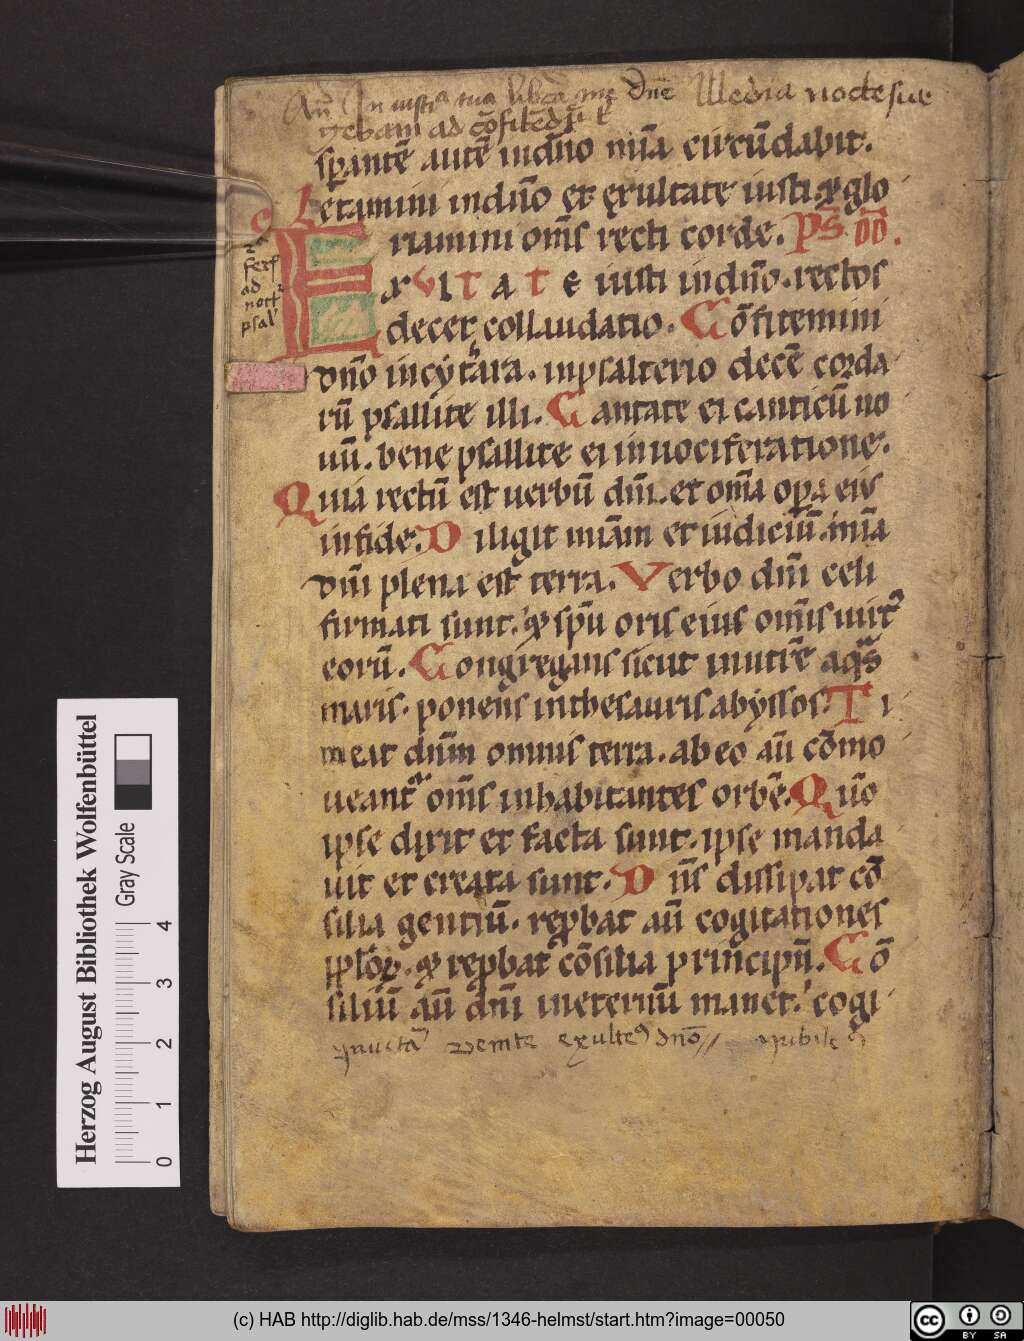 Añ In iustia tua libea me Dne Media nocte sur
gebam ad cōfitēdū t
sp̄antē autē in dn̄o mīa circūdabit.
Letamini in dn̄o et exultate iusti. & glo
riamini om̄s recti corde. Ps̄. DD̄.
EXVLTATE iusti in dn̄o. rectos
decet collaudatio. Cōfitemini
dn̄o in cythara. in psalterio decē corda
rū psallite illi. Cantate ei canticū no
uū. bene psallite ei in uociferatione.
Quia rectū est uerbū dn̄i. et om̄a opa eiꝰ
in fide. Diligit miām et iudiciū. mīa
dn̄i plena est terra. Verbo dn̄i celi
firmati sunt. & spū oris eius om̄is uirtꝰ
eorū. Congregans sicut in utrē aqᵃs
maris. ponens in thesauris abyssos. Ti
meat dn̄m omnis terra. ab eo aū cōmo
ueantᵃ om̄s inhabitantes orbē. Qūo
ipse dixit et facta sunt. ipse manda
uit et creata sunt. Dn̄s dissipat cō
silia gentiū. rep̱bat aū cogitationes
ppl̄oꝝ. & rep̱bat cōsilia principū. Cō
siliū aū dn̄i in eternū manet. cogi
venite exulteꝰ dn̄o // iubile
c
2
feri
ad
noct
psal
Herzog August Bibliothek Wolfenbüttel
Gray Scale
0 1 2 3 4
(c) HAB http://diglib.hab.de/mss/1346-helmst/start.htm?image=00050
cc BY SA